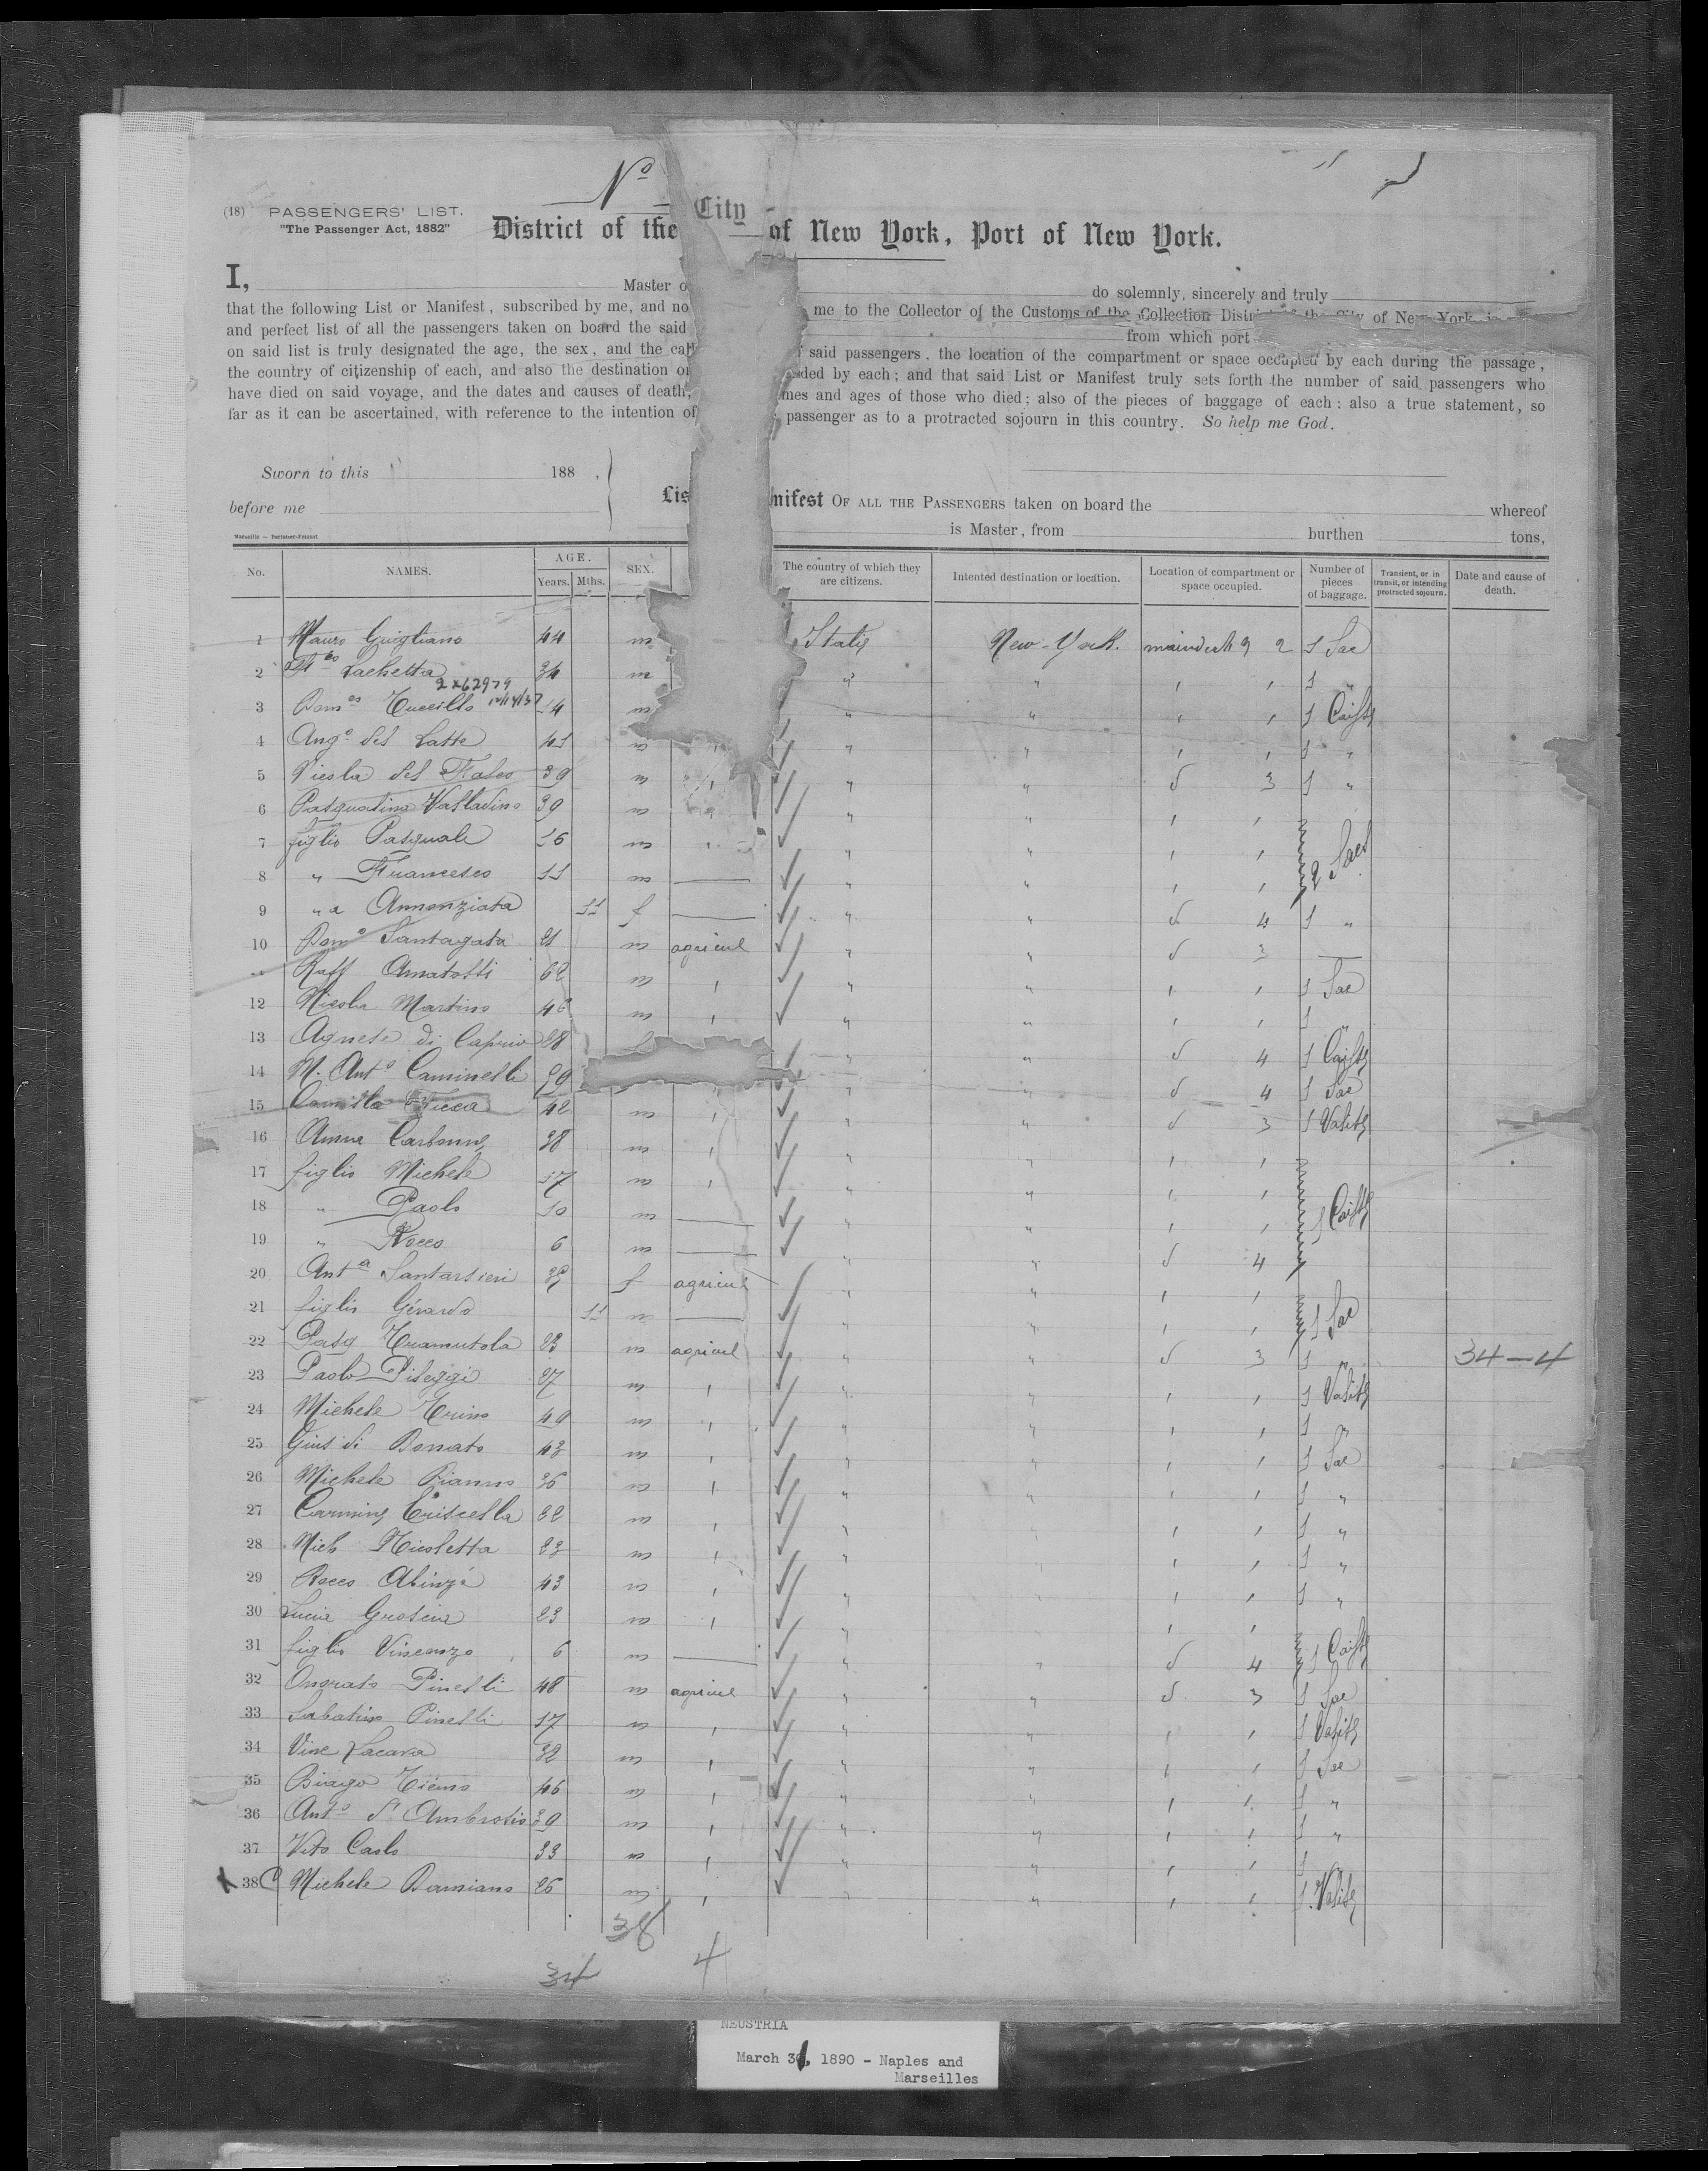 Nº
(18) PASSENGERS' LIST.
"The Passenger Act, 1882"
District of the City of New York, Port of New York.
I, Master o do solemnly, sincerely and truly
that the following List or Manifest, subscribed by me, and no me to the Collector of the Customs of the Collection District of the City of New York, is
and perfect list of all the passengers taken on board the said from which port
on said list is truly designated the age, the sex, and the cal said passengers, the location of the compartment or space occupied by each during the passage,
the country of citizenship of each, and also the destination or ded by each; and that said List or Manifest truly sets forth the number of said passengers who
have died on said voyage, and the dates and causes of death, mes and ages of those who died; also of the pieces of baggage of each: also a true statement, so
far as it can be ascertained, with reference to the intention of passenger as to a protracted sojourn in this country. So help me God.
Sworn to this 188 ,
before me
Lis nifest OF ALL THE PASSENGERS taken on board the whereof
is Master, from burthen tons,
No. NAMES. AGE. Years. Mths. SEX. The country of which they are citizens. Intented destination or location. Location of compartment or space occupied. Number of pieces of baggage. Transient, or in transit, or intending protracted sojourn. Date and cause of death.
1 Mauro Guigliano 44 m Italie New-York. 2 1 Sac
2 Lachetta 34 m " " 1 "
2x62979
3 Domco Tuccillo 14 m " " 1 Caisse
4 Angº del Latte 41 m " " 1 "
5 39 m " " d 3 1 "
6 Pasqualina 39 m " "
7 figlio Pasquale 16 m " "
8 " Francesco 11 m " " 2 Sacs
9 " a Annunziata 11 f " " d 4 1 "
10 Domº Santagata 21 m agricul " " d 3
Raff Amatotti 62 m " " 1 Sac
12 Nicola Martino 46 m " " 1 "
13 Agnese di Caprio 28 " d 4 1 Caisse
14 M. Antº Caminelli 29 " d 4 1 Sac
15 42 m " " d 3 1 Valise
16 Anna Carbone 38 m " "
17 figlio Michele 17 m " "
18 " Paolo 10 m " " 1 Caisse
19 " Rocco 6 m " " d 4
20 Anta Santarsieri f agricul " "
21 figlio Gérardo 11 m " " 1 Sac
22 Pasq Tramutola 23 m agricul " " d 3 1 " 34-4
23 Paolo 27 m " " 1 Valise
24 Michele Trino 49 m " " 1 "
25 Gius di Donnato 43 m " " 1 Sac
26 Michele 36 m " " 1 "
27 Carmine 32 m " 1 "
28 Nich Nicoletta 23 m " 1 "
29 Rocco 43 m " 1 "
30 Lucia 23 m "
31 figlio Vincenzo 6 m " " d 4 1 Caisse
32 Onorato Pinelli 48 m agricul " " d 3 1 Sac
33 Sabatino Pinelli 17 m " " 1 Valise
34 Vinc Lacava 32 m " " 1 Sac
35 Biago 46 m " " 1 "
36 Antº d'Ambrosio 39 m " " 1 "
37 Vito Caolo 33 m " " 1 "
38 Michele Damiano 26 m " " 1 Valise
38
34 4
NEUSTRIA
March 31, 1890 - Naples and
Marseilles